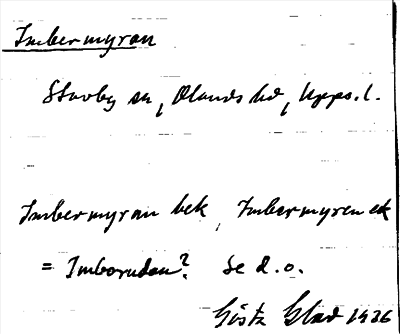 Imbermyran
Stavby sn, Olands hd, Upps. l.
Imbermyran bek, Imbermyren ek
= Imborudan? Se d. o.
Gösta Glad 1936